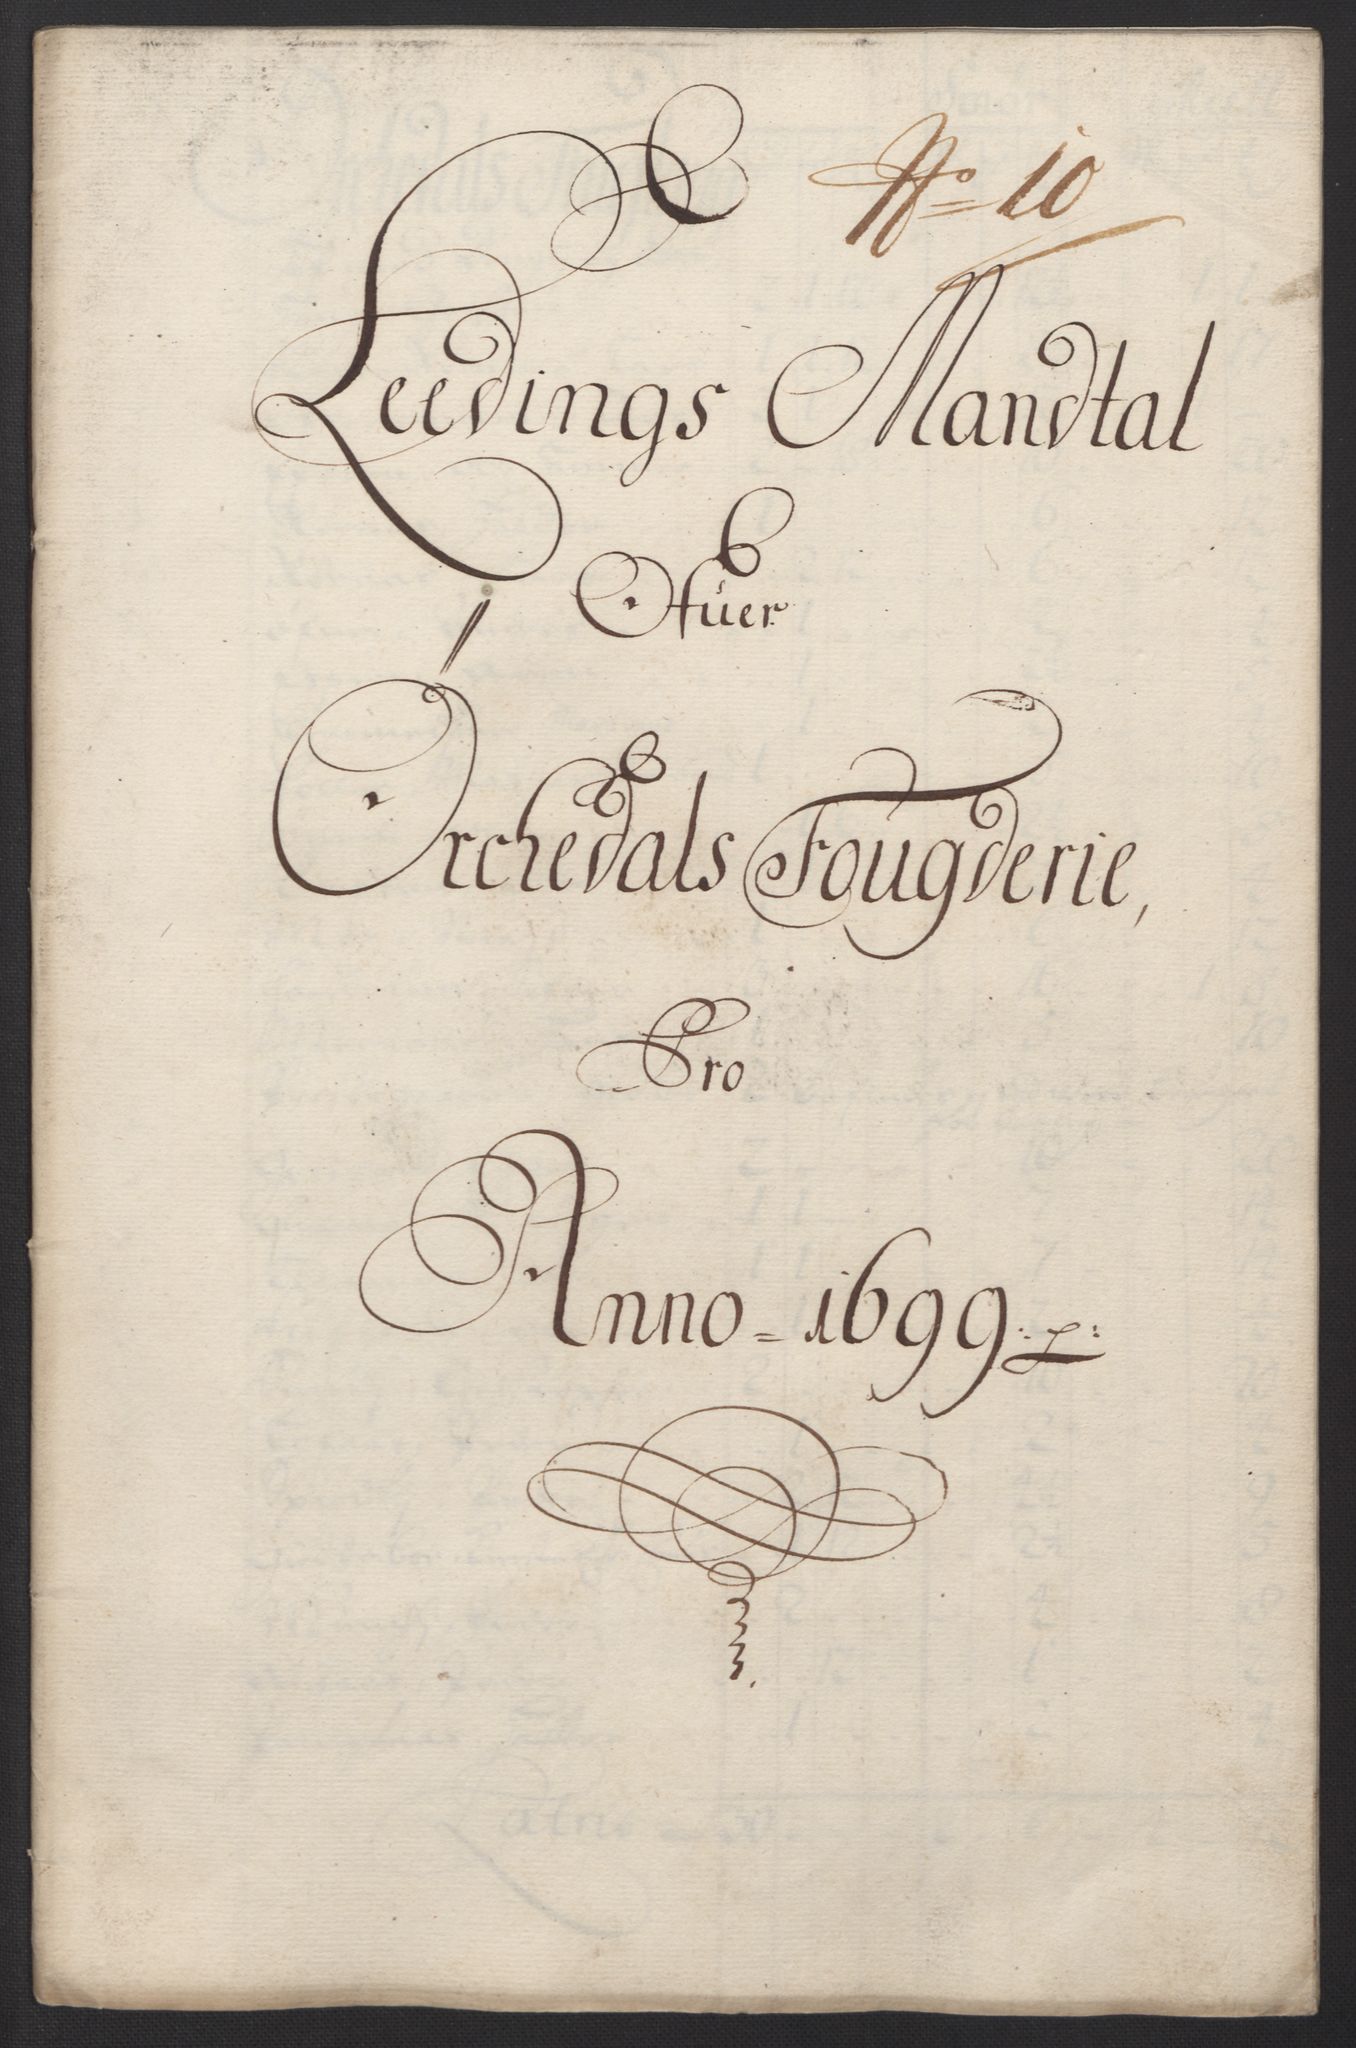 No 10
Leedings Mandtal
Ofuer
Orchedals Fougderie,
Pro
Anno = 1699